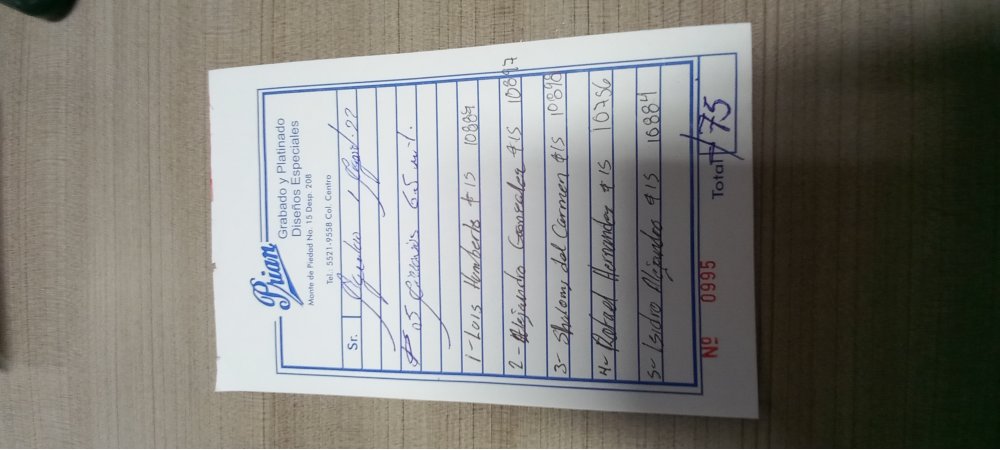 Prian
Grabado y Platinado
Diseños Especiales
Monte de Piedad No. 15 Desp. 208
Tel.: 5521-9558 Col. Centro
Sr.
05 6.5 m-1.
1-Luis Humberto $15 10889
2-Alejandro Gonzalez $15 10897
3- Shalom del Carmen $15 10890
4- Rafael Hernandez $15 10756
5- Isidro Alejandro $15 10884
Nº 0995 Total 75